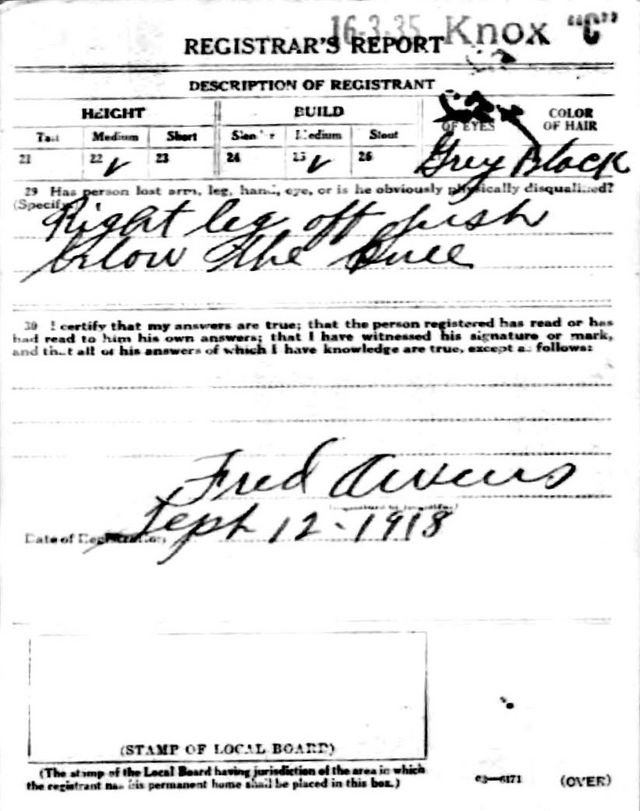 16-3-35 Knox "C"
REGISTRAR'S REPORT
DESCRIPTION OF REGISTRANT
HEIGHT BUILD COLOR
OF EYES OF HAIR
Tall Medium Short Slender Medium Stout
21 22 ✓ 23 24 25 ✓ 26 Grey Black
29 Has person lost arm, leg, hand, eye, or is he obviously physically disqualified?
(Specify)
Right leg off just
below the knee
30 I certify that my answers are true; that the person registered has read or has
had read to him his own answers; that I have witnessed his signature or mark,
and that all of his answers of which I have knowledge are true, except as follows:
Fred
Date of Registration Sept 12-1918
(STAMP OF LOCAL BOARD)
(The stamp of the Local Board having jurisdiction of the area in which
the registrant has his permanent home shall be placed in this box.)
03—6171 (OVER)